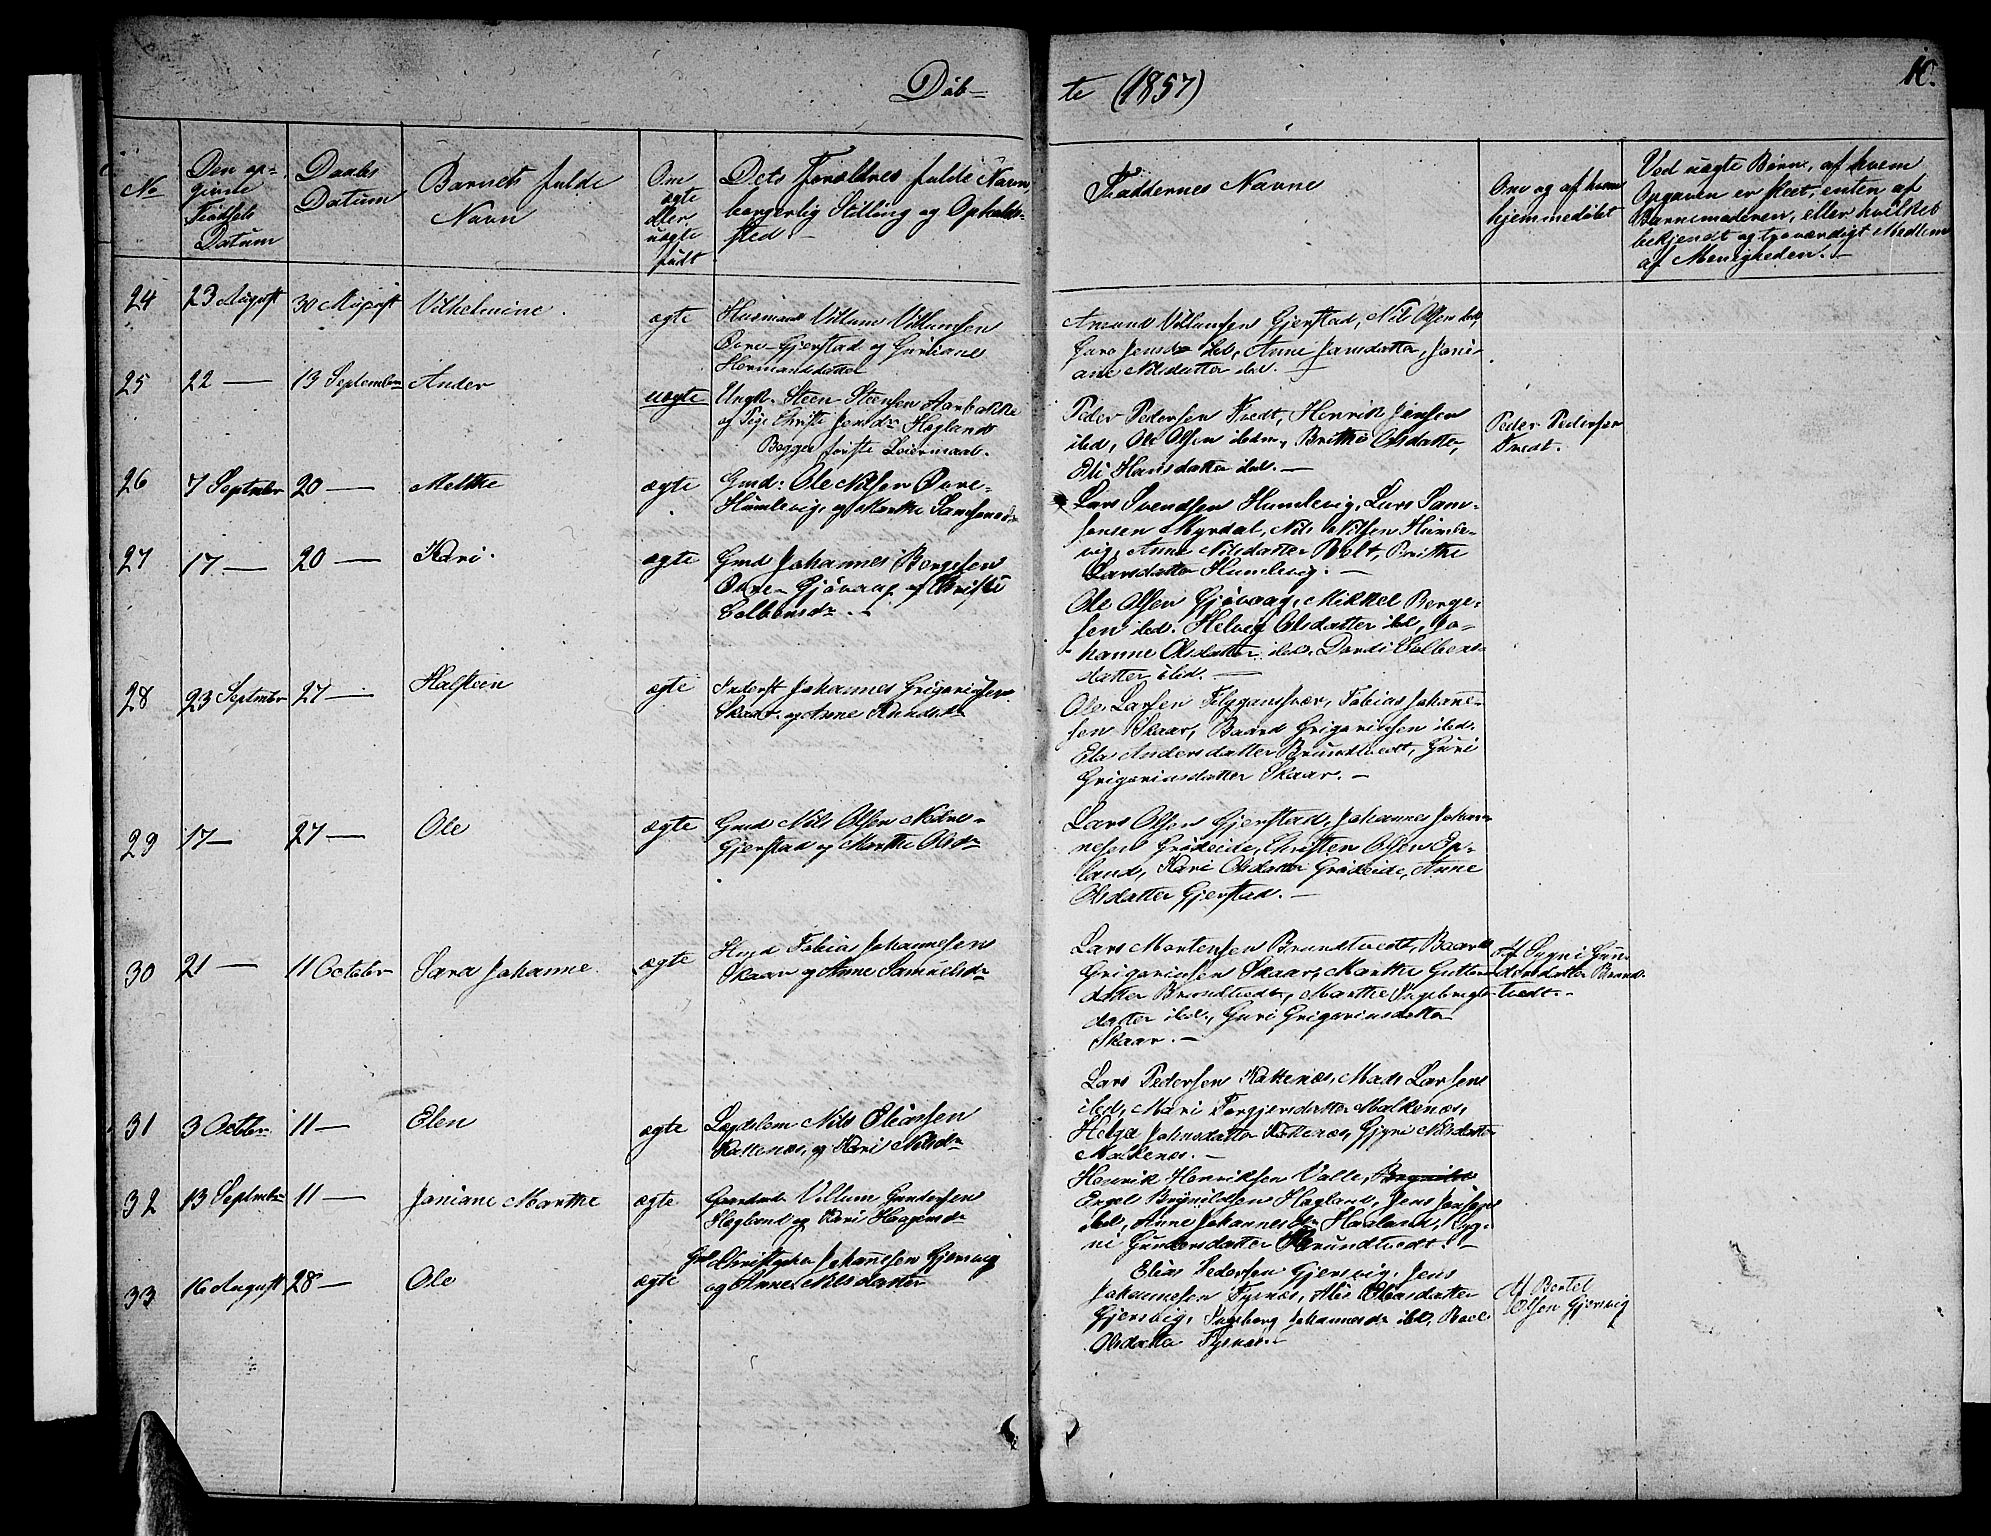 Döb-
te (1857)
10.
No
Den op-
givne
Födsels
Datum
Daabs
Datum
Barnets fulde
Navn
Om
ægte
eller
uægte
födt
Dets Forældres fulde Navn
borgerlig Stilling og Opholds-
sted.
Faddernes Navne
Om og af hvem
hjemmedöbt
Ved uægte Börn, af hvem
Opgaven er skeet, enten af
Barnemoderen, eller hvilket
bekjendt og troværdigt Medlem
af Menigheden.
24
23 August
30 August
Vilhelmine.
ægte
Husmand Villum Villumsen
Övre-Gjerstad og Guriane
Hermansdatter
Amund Villumsen Gjerstad, Nils Olsen ibd,
Jensdr ibd, Anne Jansdatter, Jani-
ane Nilsdatter ibd. —
25
22 —
13 September
Ander
uægte
Ungk. Steen Steensen Aarbakke
og Pige Christi Jensdr Hegland
Begges förste Leiermaal.
Peder Pedersen Tvedt, Henrik Jansen
ibd, Ole Olsen ibdm, Brithe Olsdatter,
Eli Hansdatter ibd. —
Peder Pedersen
Tvedt.
26
7 September
20 —
Meltke
ægte
Gmd: Ole Nilsen Övre-
Humlevig, og Marthe Samsonsdr
Lars Svendsen Humlevig, Lars Sam-
sonsen Myrdal, Nils Nilsen Humle-
vig, Anne Nilsdatter Bolt, Brithe
Larsdatter Humlevig. —
27
17 —
20 —
Kari.
ægte
Gmd Johannes Borgesen
Övre-Gjövaag og Christi
Colbensdr. —
Ole Olsen Gjövaag, Mikkel Berge-
sen ibd. Helvig Olsdatter ibd, Jo-
hanne Olsdatter ibd. Dordi Colbens-
datter ibid. —
28
23 September
27 —
Halsteen
ægte
Inderst Johannes Grigoriussen
Skaar og Anne Knudsdr
Ole Larsen Flygansvær, Tobias Johanne-
sen Skaar, Baard Grigoriussen ibd.
Ela Andersdatter Brundtvedt, Guri
Grigoriusdatter Skaar. —
29
17 —
27 —
Ole
ægte
Gmd Nils Olsen Nedre-
Gjerstad og Marthe Olsdr
Lars Olsen Gjerstad, Johannes Johan-
nesen Gröteide, Christen Olsen Op-
land, Kari Olsdatter Gröteide, Anne
Olsdatter Gjerstad. —
30
21 —
11 October
Sara Johanne.
ægte
Husmd Tobias Johannesen
Skaar og Anne Samuelsdr
Lars Mortensen Brundtvedt, Baard
Grigoriussen Skaar, Marthe Guttorms-
datter Brundtvedt, Marthe Ingebrigts-
datter ibd., Guri Grigoriusdatter
Skaar. —
Af Sygni Gun-
dersdatter Brund-
tvedt. —
31
3 October
11 —
Elen
ægte
Lægdslem Nils Eliassen
Kattenæs, og Kari Nilsdr
Lars Pedersen Kattenæs, Mads Larsen
ibd, Mari Torgjersdatter Malkenæs,
Helga Johnsdatter Kattenæs, Gjyri Nilsdatter
Malkenæs. —
32
13 September
11 —
Janiane Marthe
ægte
Gaardmd Villum Gundersen
Hegland og Kari Haagensdr
Henrik Henriksen Valle, Brynild
Engel Brynildsen Hagland, Jens Jansen
ibd, Anne Johannesdr Hagland, Syg-
ni Gundersdatter Brundtvedt. —
33
16 August
28 —
Ole
ægte
Gmd Christopher Johannesen Gjersvig
og Anne Nilsdatter
Elias Pedersen Gjersvig, Jens
Johannesen Tysnæs, Alis Eliasdatter
Gjersvig, Ingeborg Johannesdr ibd, Boel
Olsdatter Tysnæs. —
Af Bertel
Olsen Gjersvig